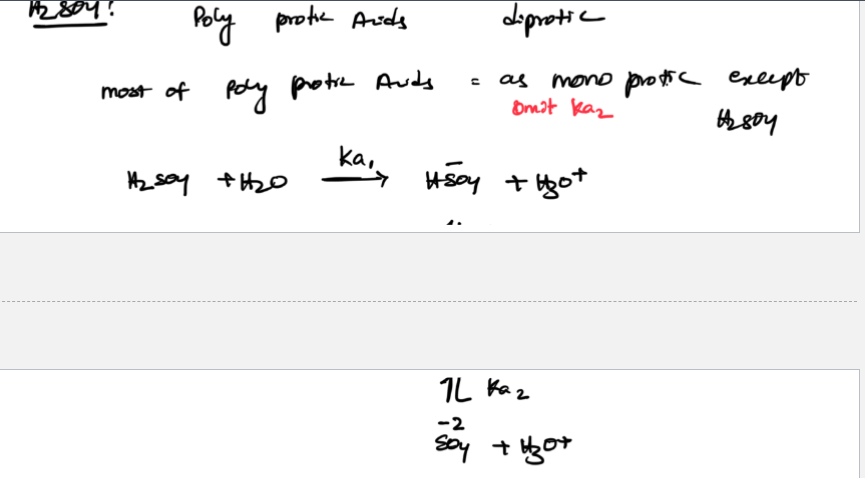 H2SO4:
Poly protic Acids diprotic
most of Poly protic Acids = as mono protic except
omit ka2 H2SO4
H2SO4 + H2O ka1 → HSO4- + H3O+
⇌ ka2
-2
SO4 + H3O+